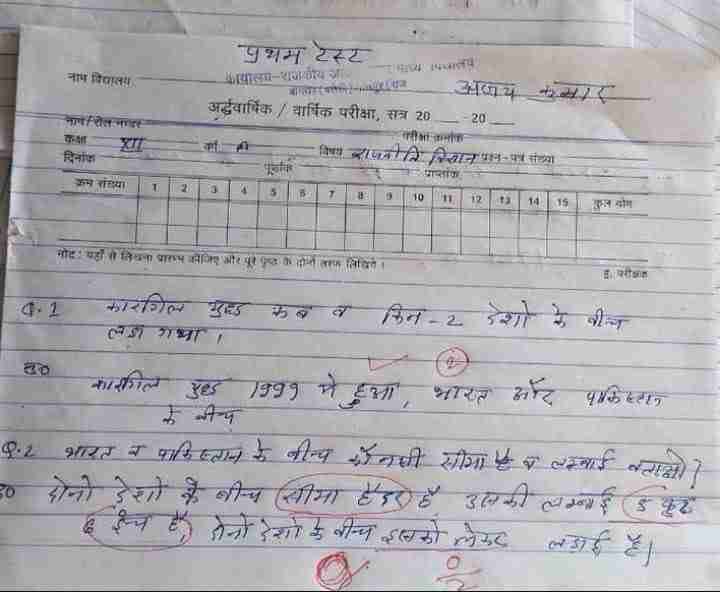 प्रथम टेस्ट
नाम विद्यालय
अजय कुमार
अर्द्धवार्षिक / वार्षिक परीक्षा, सत्र 20 -20
नाम/रोल नम्बर परीक्षा क्रमांक
कक्षा XII वर्ग विषय राजनीति विज्ञान प्रश्न-पत्र संख्या
दिनांक पूर्णांक प्राप्तांक
क्रम संख्या 1 2 3 4 5 6 7 8 9 10 11 12 13 14 15 कुल योग
नोट : यहाँ से लिखना प्रारम्भ कीजिए और पूरे पृष्ठ के दोनों तरफ लिखिये।
ह. परीक्षक
Q.1 कारगिल युद्ध कब व किन-2 देशो के बीच
लडा गया।
2
उ0 कारगिल युद्ध 1999 मे हुआ, भारत और पाकिस्तान
के बीच
Q.2 भारत व पाकिस्तान के बीच कौनसी सीमा है व लम्बाई बताओ?
उ0 दोनो देशो के बीच सीमा हैदर है उसकी लम्बाई 5 फुट
6 इंच है, दोनो देशो के बीच इसको लेकर लडाई है।
0
0/2